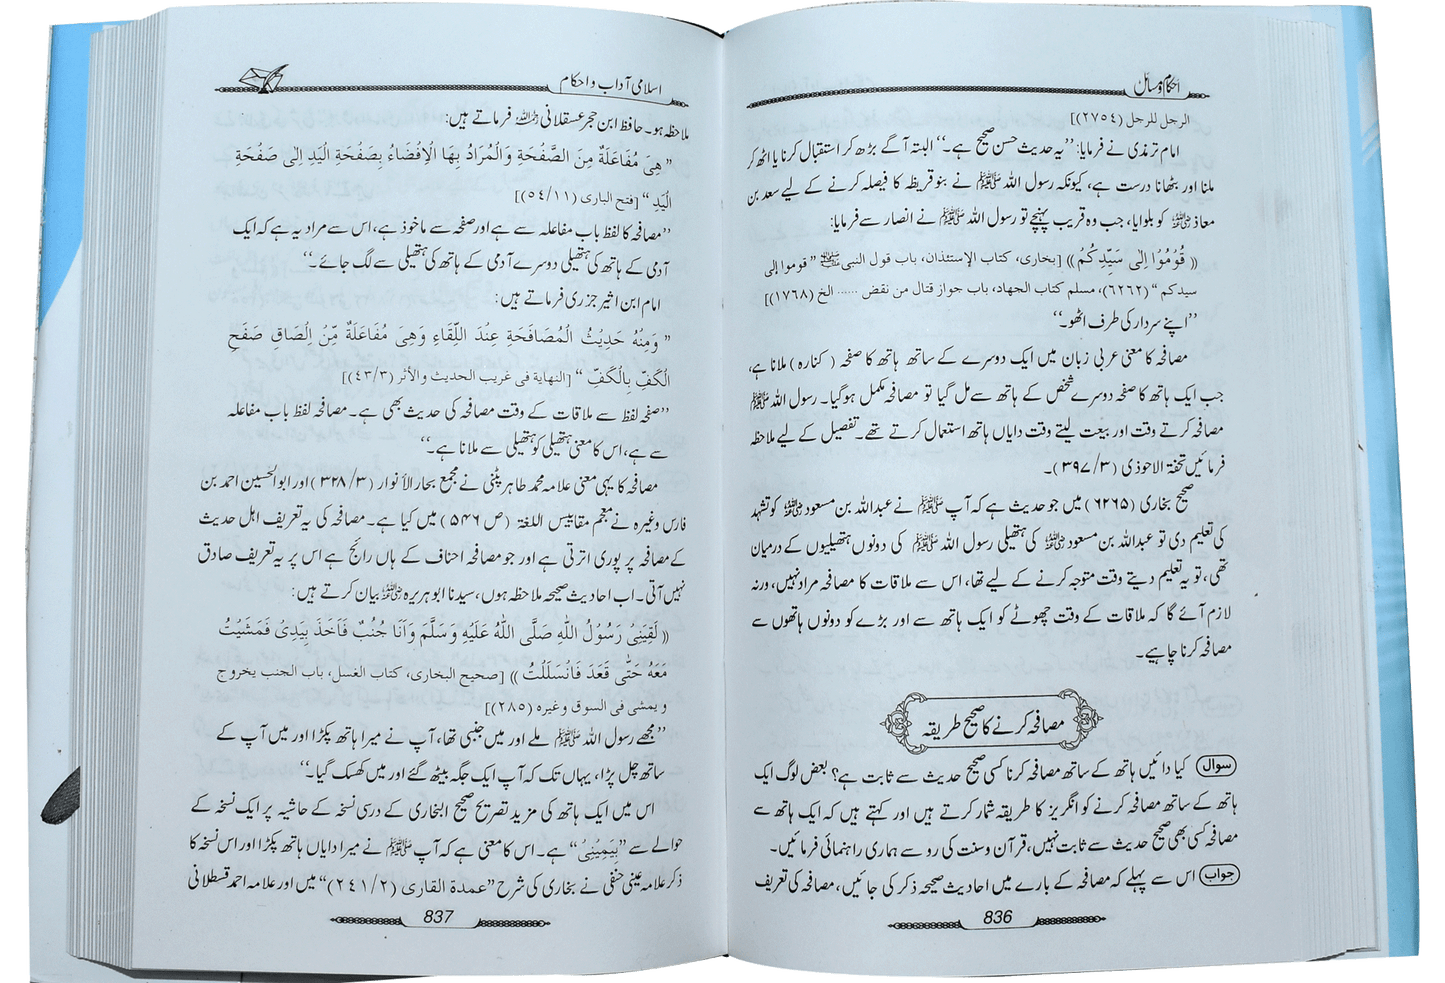 احکام و مسائل
الرجل للرجل (۲۷۵٤)]
امام ترمذی نے فرمایا: ’’یہ حدیث حسن صحیح ہے۔‘‘ البتہ آگے بڑھ کر استقبال کرنا یا اٹھ کر
ملنا اور بٹھانا درست ہے، کیونکہ رسول اللہ ﷺ نے بنو قریظہ کا فیصلہ کرنے کے لیے سعد بن
معاذ رضی اللہ عنہ کو بلوایا، جب وہ قریب پہنچے تو رسول اللہ ﷺ نے انصار سے فرمایا:
(( قُوْمُوْا اِلٰی سَیِّدِکُمْ )) [بخاری، کتاب الإستئذان، باب قول النبی ﷺ ” قوموا إلی
سیدکم “ (٦٢٦٢)، مسلم کتاب الجهاد، باب جواز قتال من نقض ...... الخ (١٧٦٨)]
’’اپنے سردار کی طرف اٹھو۔‘‘
مصافحہ کا معنی عربی زبان میں ایک دوسرے کے ساتھ ہاتھ کا صفحہ ( کنارہ ) ملانا ہے،
جب ایک ہاتھ کا صفحہ دوسرے شخص کے ہاتھ سے مل گیا تو مصافحہ مکمل ہوگیا۔ رسول اللہ ﷺ
مصافحہ کرتے وقت اور بیعت لیتے وقت دایاں ہاتھ استعمال کرتے تھے۔ تفصیل کے لیے ملاحظہ
فرمائیں تحفۃ الاحوذی (۳۹۷/۳)۔
صحیح بخاری (۶۲۶۵) میں جو حدیث ہے کہ آپ ﷺ نے عبداللہ بن مسعود رضی اللہ عنہ کو تشہد
کی تعلیم دی تو عبداللہ بن مسعود رضی اللہ عنہ کی ہتھیلی رسول اللہ ﷺ کی دونوں ہتھیلیوں کے درمیان
تھی، تو یہ تعلیم دیتے وقت متوجہ کرنے کے لیے تھا، اس سے ملاقات کا مصافحہ مراد نہیں، ورنہ
لازم آئے گا کہ ملاقات کے وقت چھوٹے کو ایک ہاتھ سے اور بڑے کو دونوں ہاتھوں سے
مصافحہ کرنا چاہیے۔
مصافحہ کرنے کا صحیح طریقہ
سوال کیا دائیں ہاتھ کے ساتھ مصافحہ کرنا کسی صحیح حدیث سے ثابت ہے؟ بعض لوگ ایک
ہاتھ کے ساتھ مصافحہ کرنے کو انگریز کا طریقہ شمار کرتے ہیں اور کہتے ہیں کہ ایک ہاتھ سے
مصافحہ کسی بھی صحیح حدیث سے ثابت نہیں، قرآن و سنت کی رو سے ہماری راہنمائی فرمائیں۔
جواب اس سے پہلے کہ مصافحہ کے بارے میں احادیث صحیحہ ذکر کی جائیں، مصافحہ کی تعریف
836
اسلامی آداب و احکام
ملاحظہ ہو۔ حافظ ابن حجر عسقلانی رحمہ اللہ فرماتے ہیں:
” هِیَ مُفَاعَلَةٌ مِنَ الصَّفْحَةِ وَالْمُرَادُ بِهَا الْاِفْضَاءُ بِصَفْحَةِ الْیَدِ اِلٰی صَفْحَةِ
الْیَدِ “ [فتح الباری (٥٤/١١)]
’’مصافحہ کا لفظ باب مفاعلہ سے ہے اور صفحہ سے ماخوذ ہے، اس سے مراد یہ ہے کہ ایک
آدمی کے ہاتھ کی ہتھیلی دوسرے آدمی کے ہاتھ کی ہتھیلی سے لگ جائے۔‘‘
امام ابن اثیر جزری فرماتے ہیں:
” وَمِنْهُ حَدِیْثُ الْمُصَافَحَةِ عِنْدَ اللِّقَاءِ وَهِیَ مُفَاعَلَةٌ مِّنْ اِلْصَاقِ صَفْحِ
الْکَفِّ بِالْکَفِّ “ [النهایة فی غریب الحدیث والأثر (٤٣/٣)]
’’صفح لفظ سے ملاقات کے وقت مصافحہ کی حدیث بھی ہے۔ مصافحہ لفظ باب مفاعلہ
سے ہے، اس کا معنی ہتھیلی کو ہتھیلی سے ملانا ہے۔‘‘
مصافحہ کا یہی معنی علامہ محمد طاہر پٹنی نے مجمع بحار الأنوار (۳۲۸/۳) اور ابو الحسین احمد بن
فارس وغیرہ نے معجم مقاییس اللغۃ (ص ۵۴۶) میں کیا ہے۔ مصافحہ کی یہ تعریف اہل حدیث
کے مصافحہ پر پوری اترتی ہے اور جو مصافحہ احناف کے ہاں رائج ہے اس پر یہ تعریف صادق
نہیں آتی۔ اب احادیث صحیحہ ملاحظہ ہوں، سیدنا ابو ہریرہ رضی اللہ عنہ بیان کرتے ہیں:
(( لَقِیَنِیْ رَسُوْلُ اللّٰهِ صَلَّی اللّٰهُ عَلَیْهِ وَسَلَّمَ وَاَنَا جُنُبٌ فَاَخَذَ بِیَدِیْ فَمَشَیْتُ
مَعَهٗ حَتّٰی قَعَدَ فَانْسَلَلْتُ )) [صحیح البخاری، کتاب الغسل، باب الجنب یخروج
و یمشی فی السوق وغیره (٢٨٥)]
’’مجھے رسول اللہ ﷺ ملے اور میں جنبی تھا، آپ نے میرا ہاتھ پکڑا اور میں آپ کے
ساتھ چل پڑا، یہاں تک کہ آپ ایک جگہ بیٹھ گئے اور میں کھسک گیا۔‘‘
اس میں ایک ہاتھ کی مزید تصریح صحیح البخاری کے درسی نسخہ کے حاشیہ پر ایک نسخہ کے
حوالے سے ”بِیَمِیْنِیْ“ ہے۔ اس کا معنی ہے کہ آپ ﷺ نے میرا دایاں ہاتھ پکڑا اور اس نسخہ کا
ذکر علامہ عینی حنفی نے بخاری کی شرح ”عمدة القاری (٢٤١/٢)“ میں اور علامہ احمد قسطلانی
837